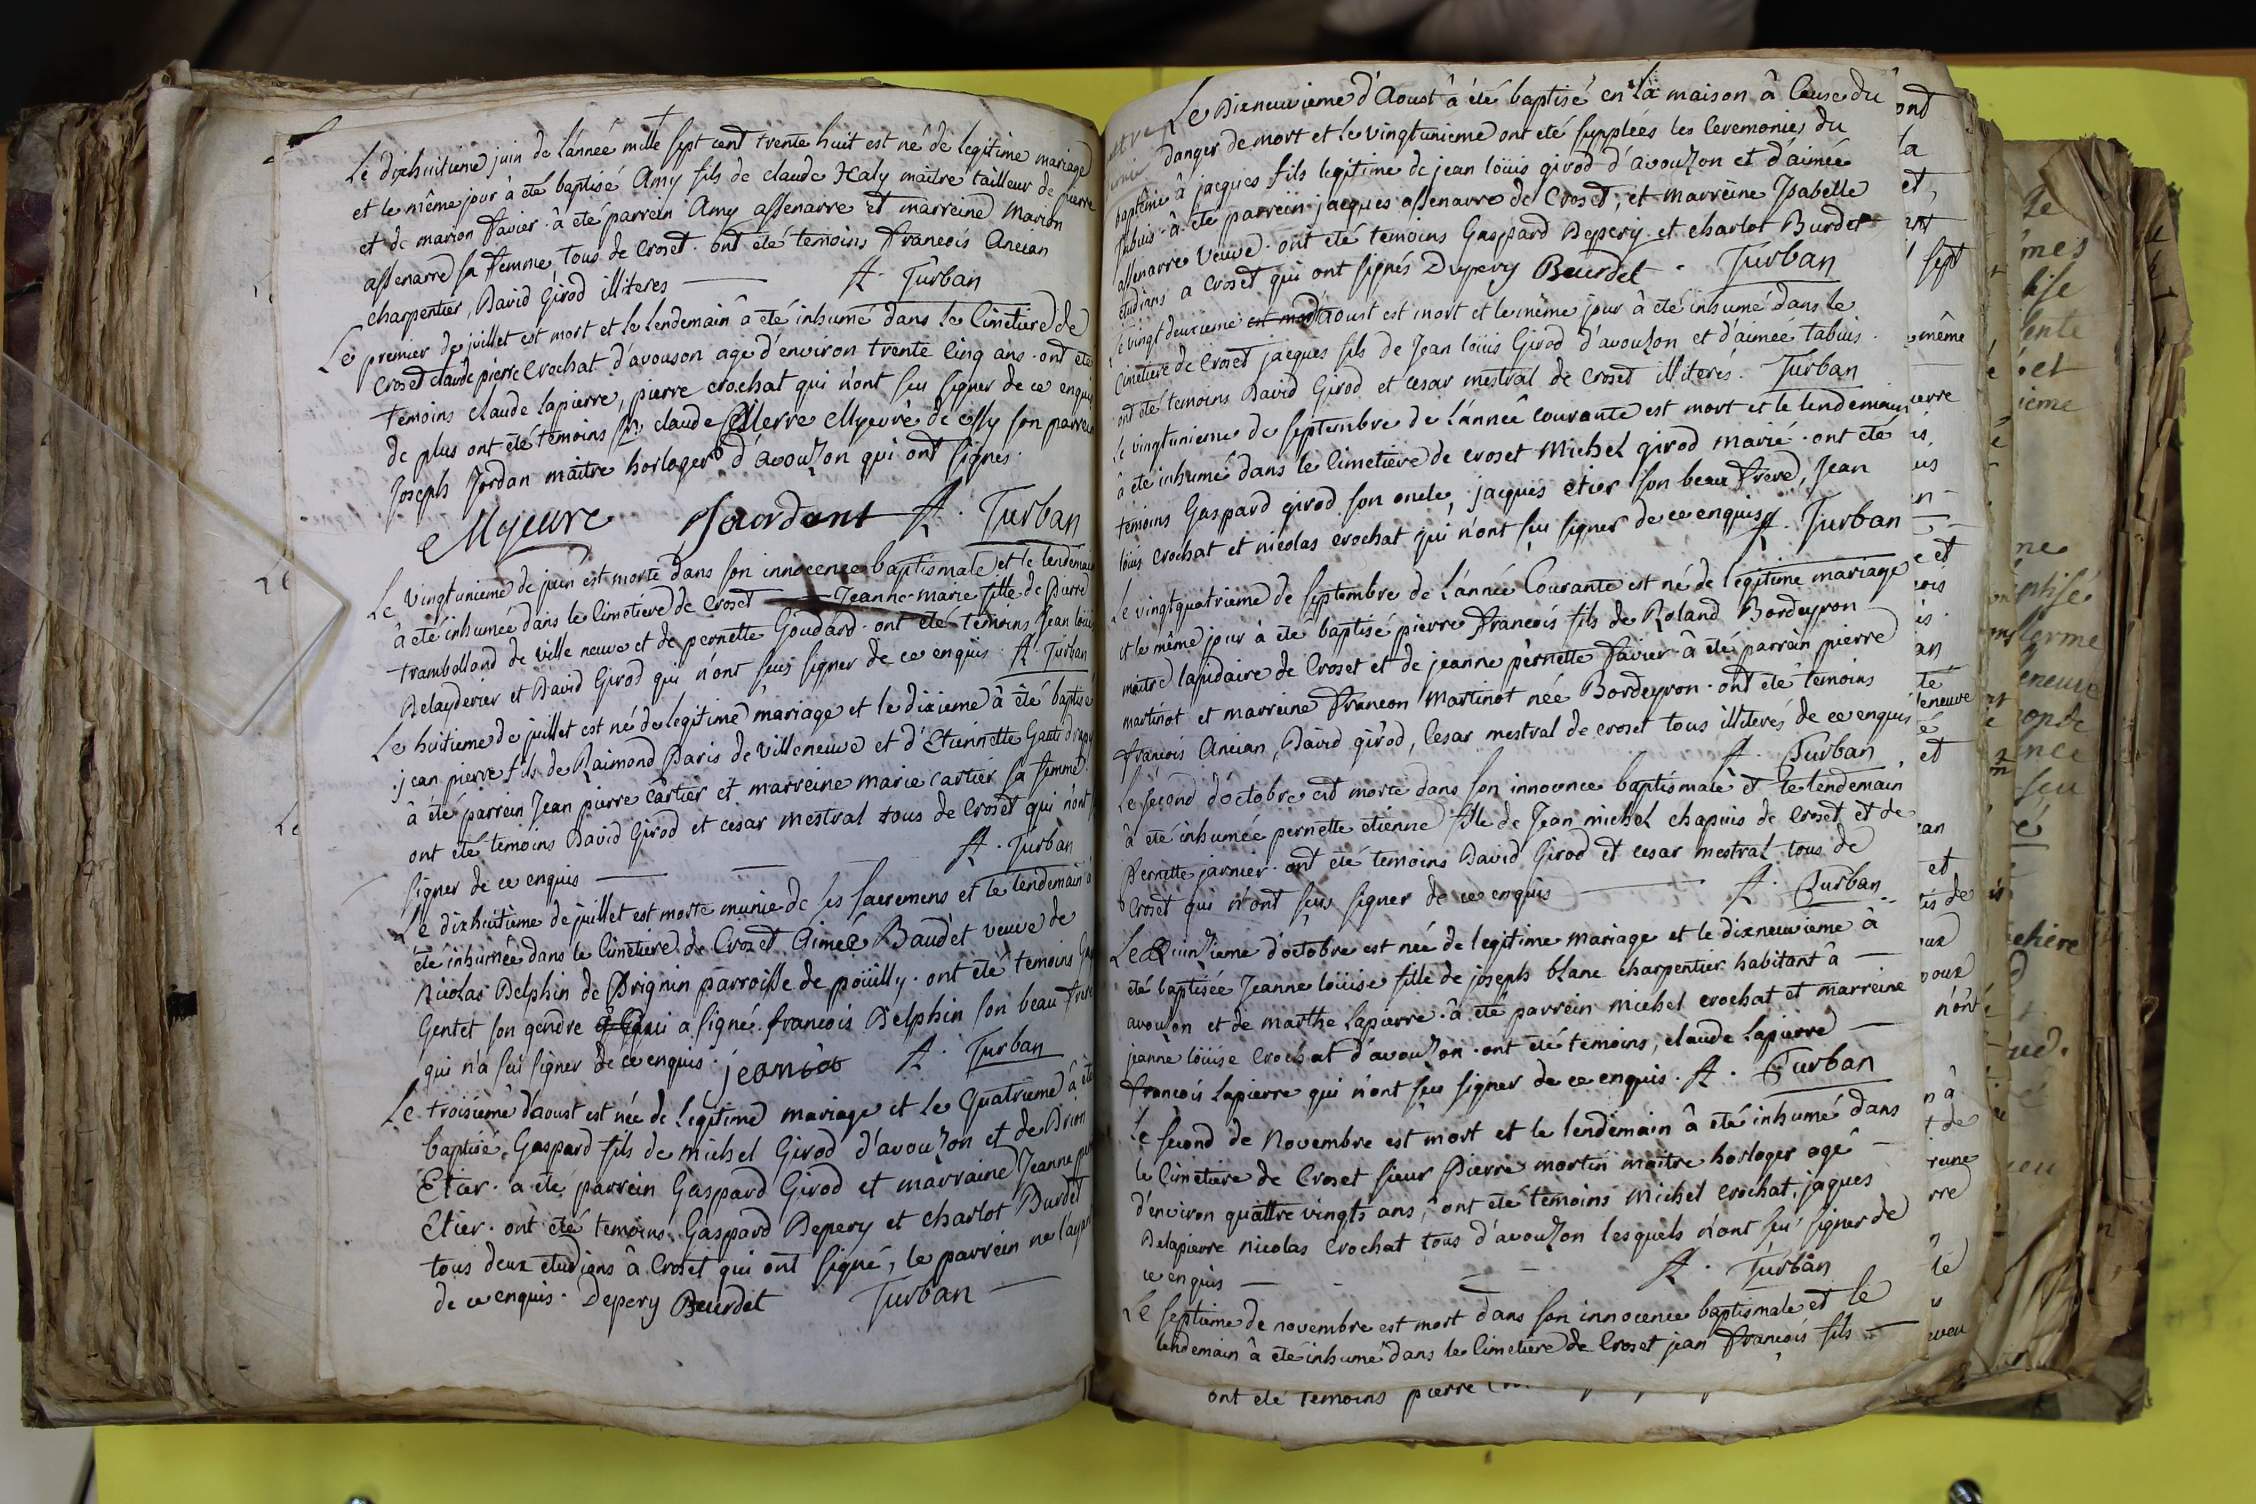 Le dixhuitieme juin de l'année mille sept cent trente huit est né de legitime mariage
et le même jour à eté baptisé Amy fils de claude Haly maitre tailleur de pierre
et de marion favier. à eté parrein Amy assenarre et marreine Marion
assenarre sa femme tous de Croset. ont eté temoins francois Ancian
charpentier, David Girod illiteres — A. Turban
Le premier de juillet est mort et le lendemain â eté inhumé dans le Cimetiere de
Croset claude pierre Crochat d'avouson age d'environ trente cinq ans. ont eté
temoins claude lapierre, pierre crochat qui n'ont seu signer de ce enquis
de plus ont eté temoins claude Myevre de son parrein
Joseph Jordan maitre horloger d'avouzon qui ont signés.
Myevre Jourdant A. Turban
Le vingtunieme de juin est morte dans son innocence baptismale et le lendemain
à eté inhumée dans le cimetiere de Croset — Jeanne-marie fille de Pierre
tramballand de ville neuve et de pernette Goudard. ont eté temoins Jean loüis
Delayderier et David Girod qui n'ont seus signer de ce enquis. A. Turban
Le huitieme de juillet est né de legitime mariage et le dixieme â eté baptisé
jean pierre fils de Raimond Paris de Villeneuve et d'Etiennette
à été parrein Jean pierre cartier et marreine marie cartier sa femme.
ont eté temoins David Girod et cesar mestral tous de Croset qui n'ont
signer de ce enquis — — A. Turban
Le dixhuitième de juillet est morte munie de ses sacremens et le lendemain à
été inhumée dans le cimetiere de Crozet Aimée Baudet veuve de
Nicolas Delphin de Brignin parroisse de poüilly. ont eté temoins
Gentet son gendre qui a signé. francois Delphin son beau frere
qui n'a seu signer de ce enquis. A. Turban
Le troisième d'aoust est née de legitime mariage et le quatrieme à eté
baptisé Gaspard fils de michel Girod d'avouzon et de
Etier. a eté parrein Gaspard Girod et marraine Jeanne
Etier. ont eté temoins Gaspard Depery et charlot Burdet
tous deux etudians â Croset qui ont signé, le parrein ne l'ayant
de ce enquis. Depery Beurdet Turban —
Le Dixneuvieme d'Aoust â eté baptisé en la maison â Cause du
danger de mort et le vingtunieme ont eté supplées les Ceremonies du
baptême â jacques fils legitime de jean loüis girod d'avouzon et d'aimée
Tabuis. â eté parrein jacques assenarre de Croset, et marreine Isabelle
assenarre veuve. ont eté temoins Gaspard Depery et charlot Burdet
etudians a Croset qui ont signés Dupery Beurdet. Turban
Le vingt deuxieme est mort d'aoust est mort et le même jour â eté inhumé dans le
cimetiere de Croset jacques fils de Jean loüis Girod d'avouzon et d'aimee tabuis.
ont eté temoins David Girod et cesar mestral de Croset illiterés. Turban
Le vingtunieme de septembre de l'année courante est mort et le lendemain
â eté inhumé dans le cimetiere de croset Michel girod marié. ont eté
temoins Gaspard girod son oncle, jacques etier son beau frere, Jean
loüis crochat et nicolas crochat qui n'ont seu signer de ce enquis. A. Turban
Le vingtquatrieme de septembre de l'année Courante est né de legitime mariage
et le même jour à eté baptisé pierre francois fils de Roland Bordeyron
maitre lapidaire de Croset et de jeanne pernette favier. â eté parrain pierre
martinot et marreine francon martinot née Bordeyron. ont eté temoins
francois Ancian, David girod, Cesar mestral de croset tous illiterés de ce enquis
A. Turban
Le second d'octobre est morte dans son innocence baptismale et le lendemain
à eté inhumée pernette etienne fille de Jean michel chapuis de Croset et de
Pernette jarnier. ont eté temoins David Girod et cesar mestral tous de
Croset qui n'ont seus signer de ce enquis — A. Turban
Le Quinzieme d'octobre est née de legitime mariage et le dixneuvieme â
eté baptisée Jeanne loüise fille de joseph blanc charpentier habitant â —
avouzon et de marthe lapierre. â eté parrein michel crochat et marreine
jeanne loüise Crochat d'avouzon. ont eté temoins, claude lapierre —
francois lapierre qui n'ont seu signer de ce enquis. A. Turban
Le second de Novembre est mort et le lendemain â eté inhumé dans
le Cimetiere de Croset sieur Pierre mortin maitre horloger agé —
d'environ quattre vingts ans, ont eté temoins michel crochat, jaques
Delapierre nicolas Crochat tous d'avouzon lesquels n'ont seu signer de
ce enquis — A. Turban
Le septieme de novembre est mort dans son innocence baptismale et le
lendemain â eté inhumé dans le Cimetiere de Croset jean françois fils —
ont eté temoins pierre